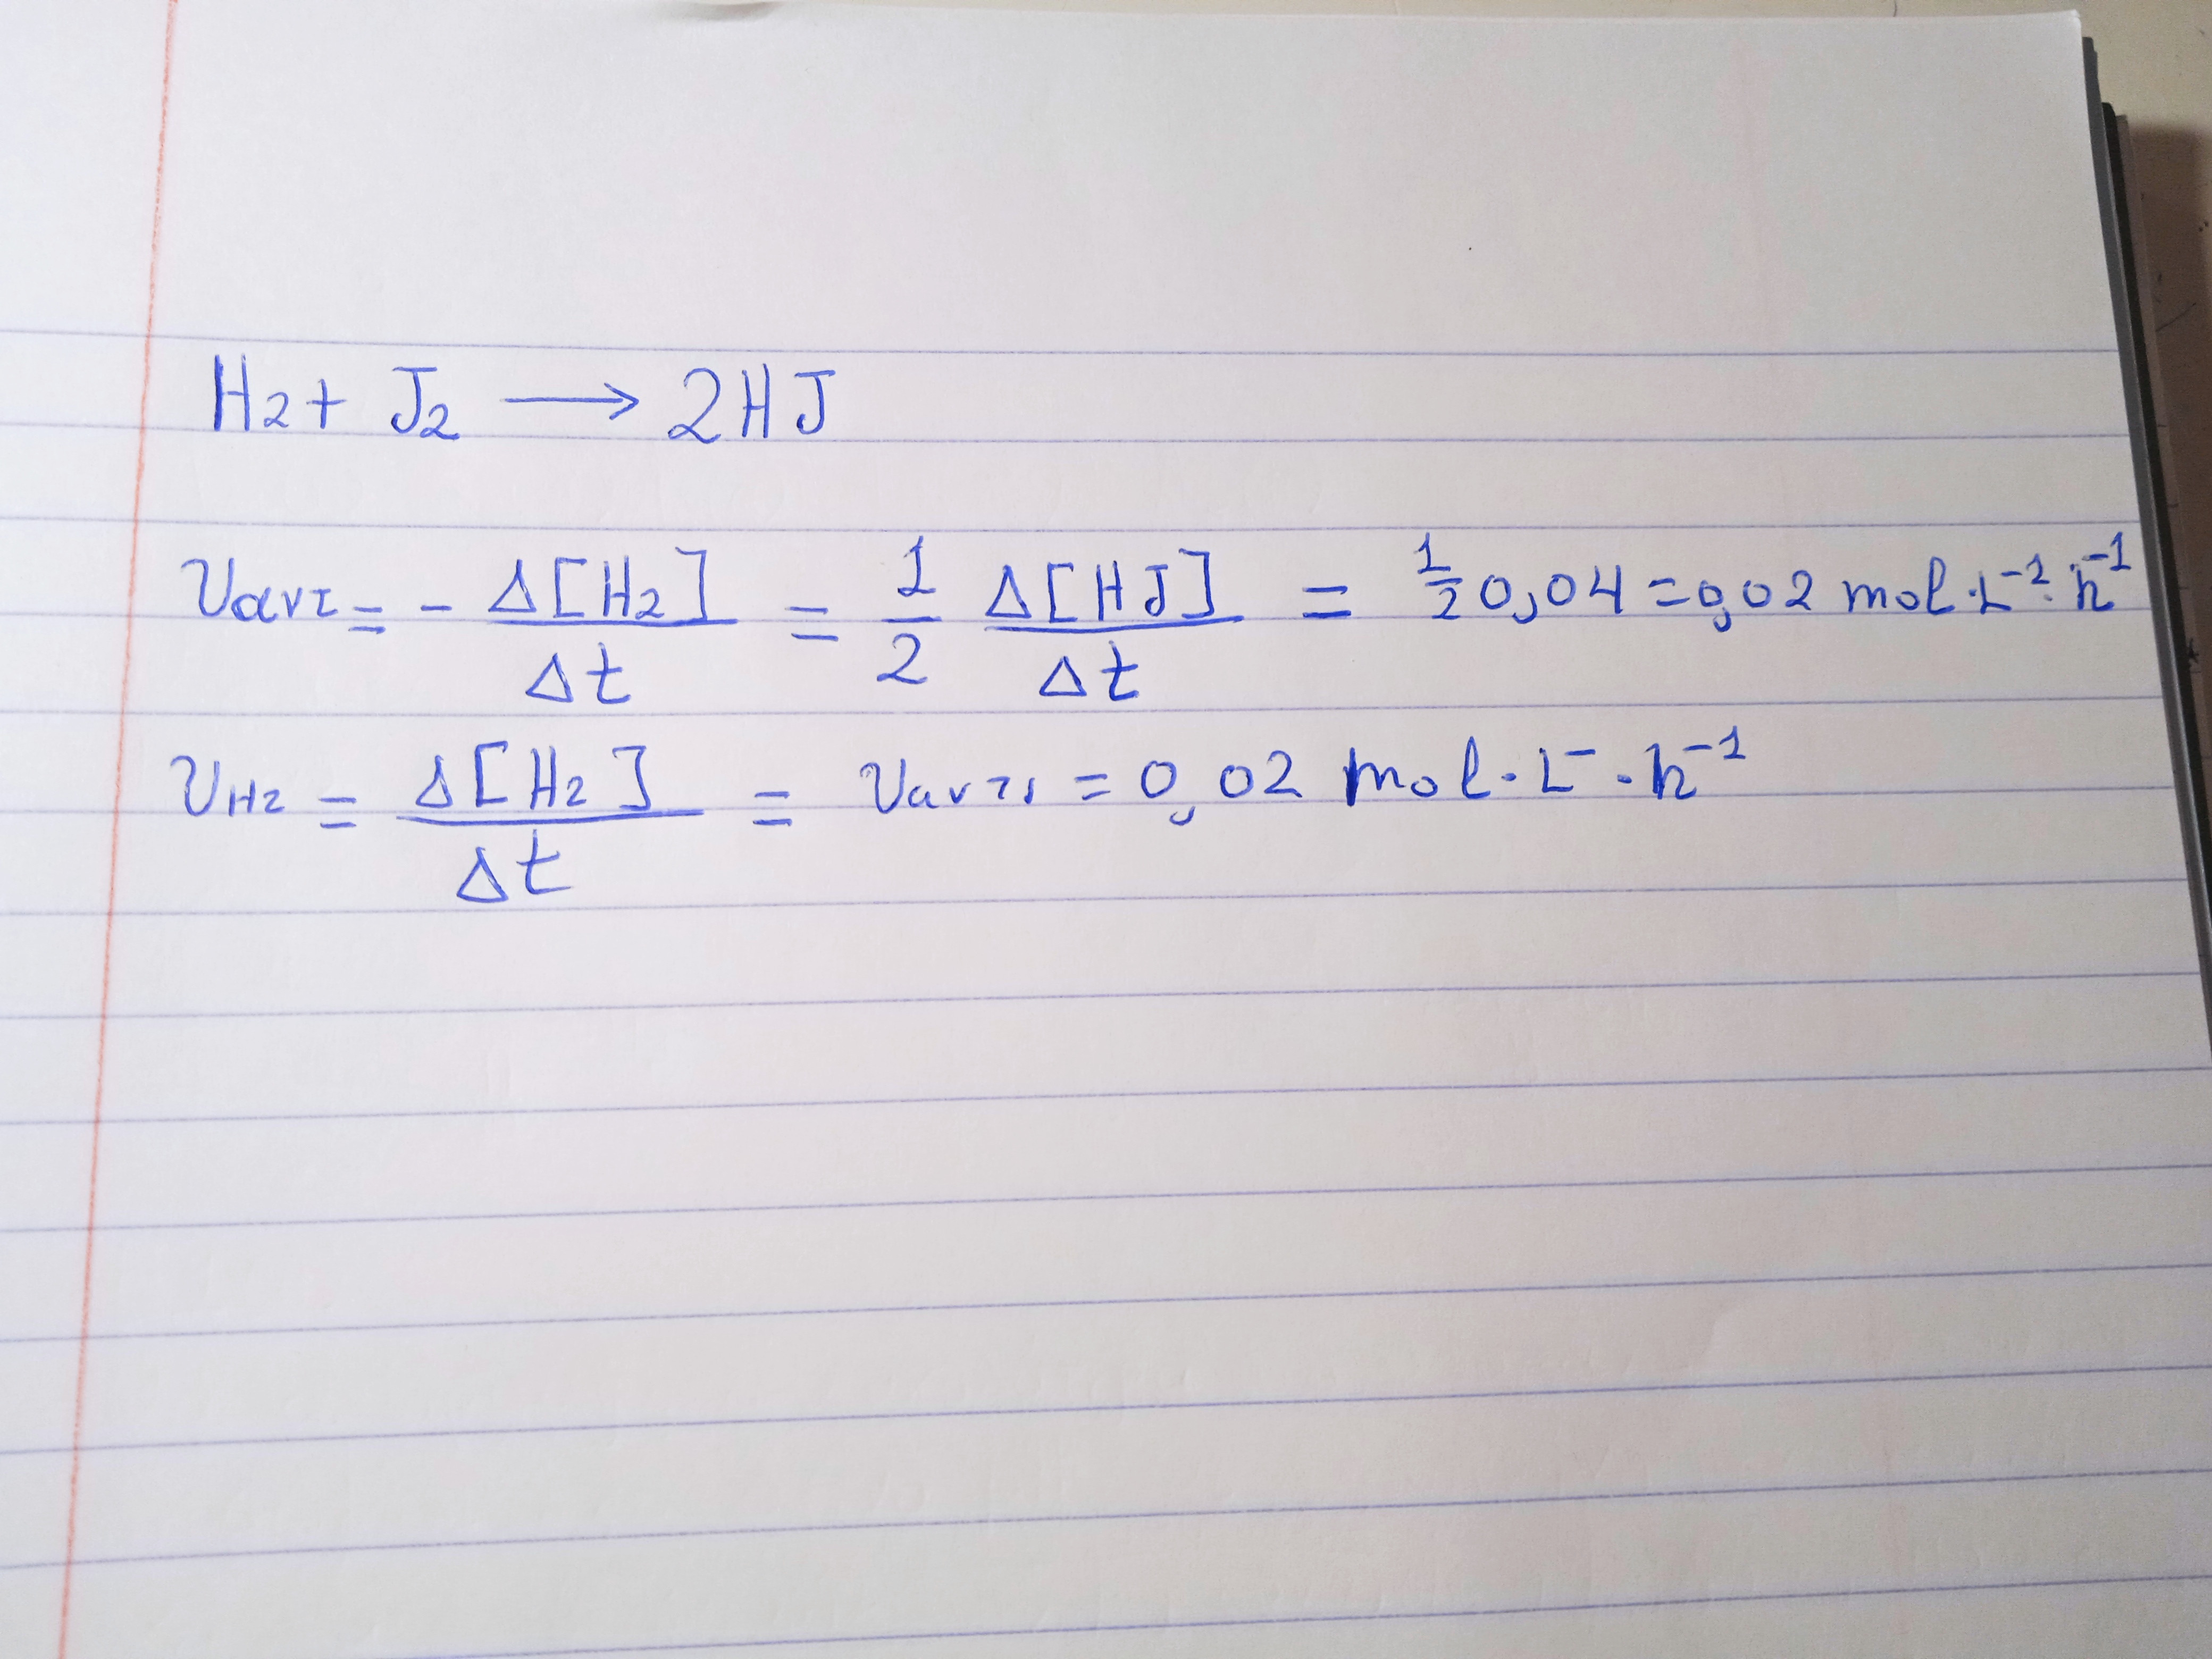 H2 + J2 → 2HJ
υαντ = - Δ[H2]/Δt = 1/2 Δ[HJ]/Δt = 1/2 0,04 = 0,02 mol·L⁻¹·h⁻¹
υH2 = Δ[H2]/Δt = υαντι = 0,02 mol·L⁻·h⁻¹